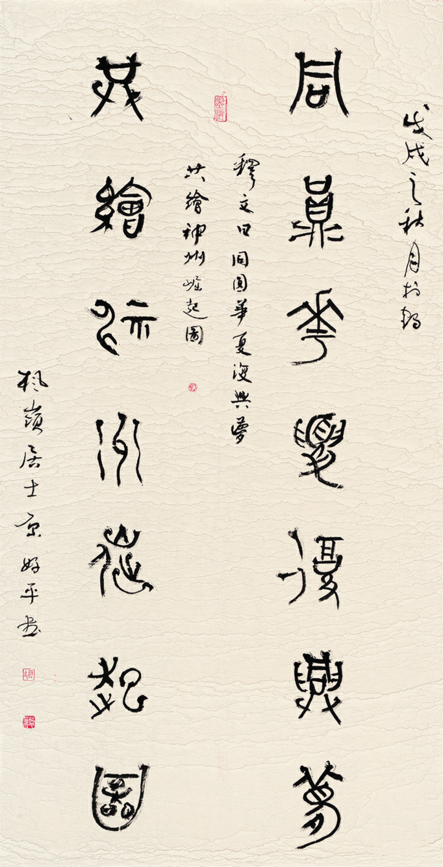 戊戌之秋月於
同圓華夏復興夢
釋文曰同圓華夏復興夢
共繪神州崛起圖
共繪神州崛起圖
楓嶺居士京好平書